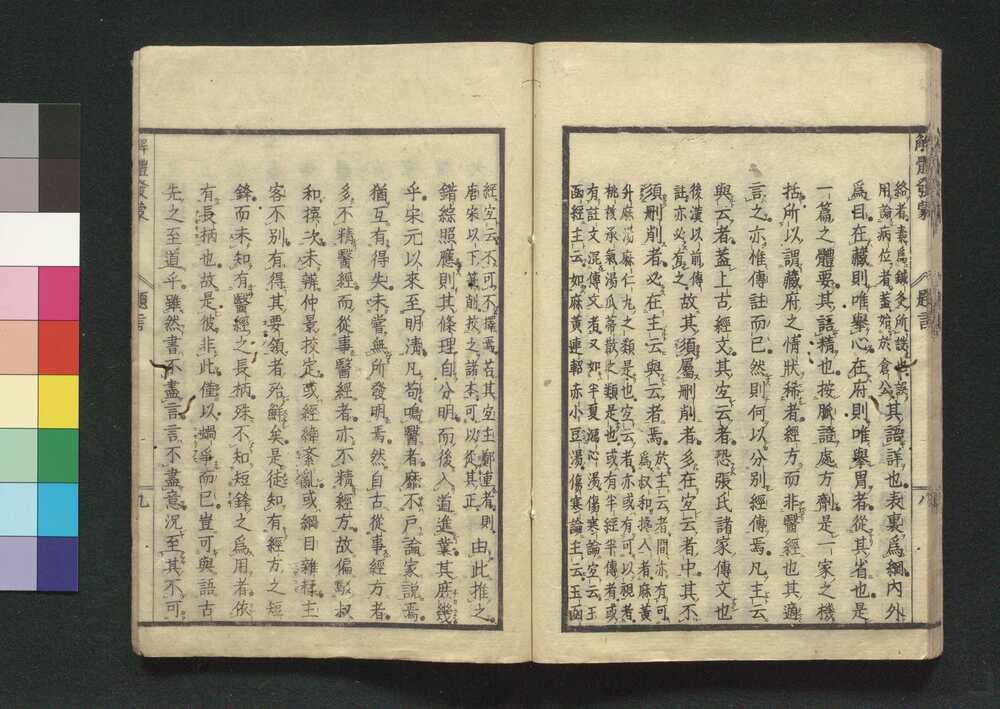 解體發蒙 題言 八
絡者素爲鍼灸所設此説
用論病位者蓋始於倉公其語詳也表裏爲綱內外
爲目在藏則唯擧心在府則唯擧胃者從其省也是
一篇之體要其語精也按脈證處方劑是一家之機
括所以謂藏府之情狀稀者經方而非醫經也其適
言之亦惟傳註而已然則何以分別經傳焉凡主云
與云者蓋上古經文其空云者恐張氏諸家傳文也
後漢以前傳
註亦必有之故其須屬刪削者多在空云者中其不
須刪削者必在主云與云者焉於主云者間亦有可
爲叔和攙入者麻黃
升麻湯麻仁丸之類是也空云者亦或有可以視者
桃核承氣湯瓜蒂散之類是也或有半經半傳者或
有註文混傳文者又如半夏瀉心湯傷寒論空云玉
函經主云如麻黃連軺赤小豆湯傷寒論主云玉函
經空云不可不擇焉若其空主鄭重者則
唐宋以下篡削技之諸本可以從其正由此推之
錯綜照應則其條理自分明而後入道進業其庶幾
乎宋元以來至明淸凡苟鳴醫者靡不戶論家說焉
猶互有得失未嘗無所發明焉然自古從事經方者
多不精醫經而從事醫經者亦不精經方故偏駁叔
和撰次未辨仲景校定或經緯紊亂或綱目雜糅主
客不別有得其要領者殆鮮矣是徒知有經方之短
鋒而未知有醫經之長柄殊不知短鋒之爲用者依
有長柄也故是彼非此僅以蝸爭而已豈可與語古
先之至道乎雖然書不盡言言不盡意況至其不可
解體發蒙 題言 九